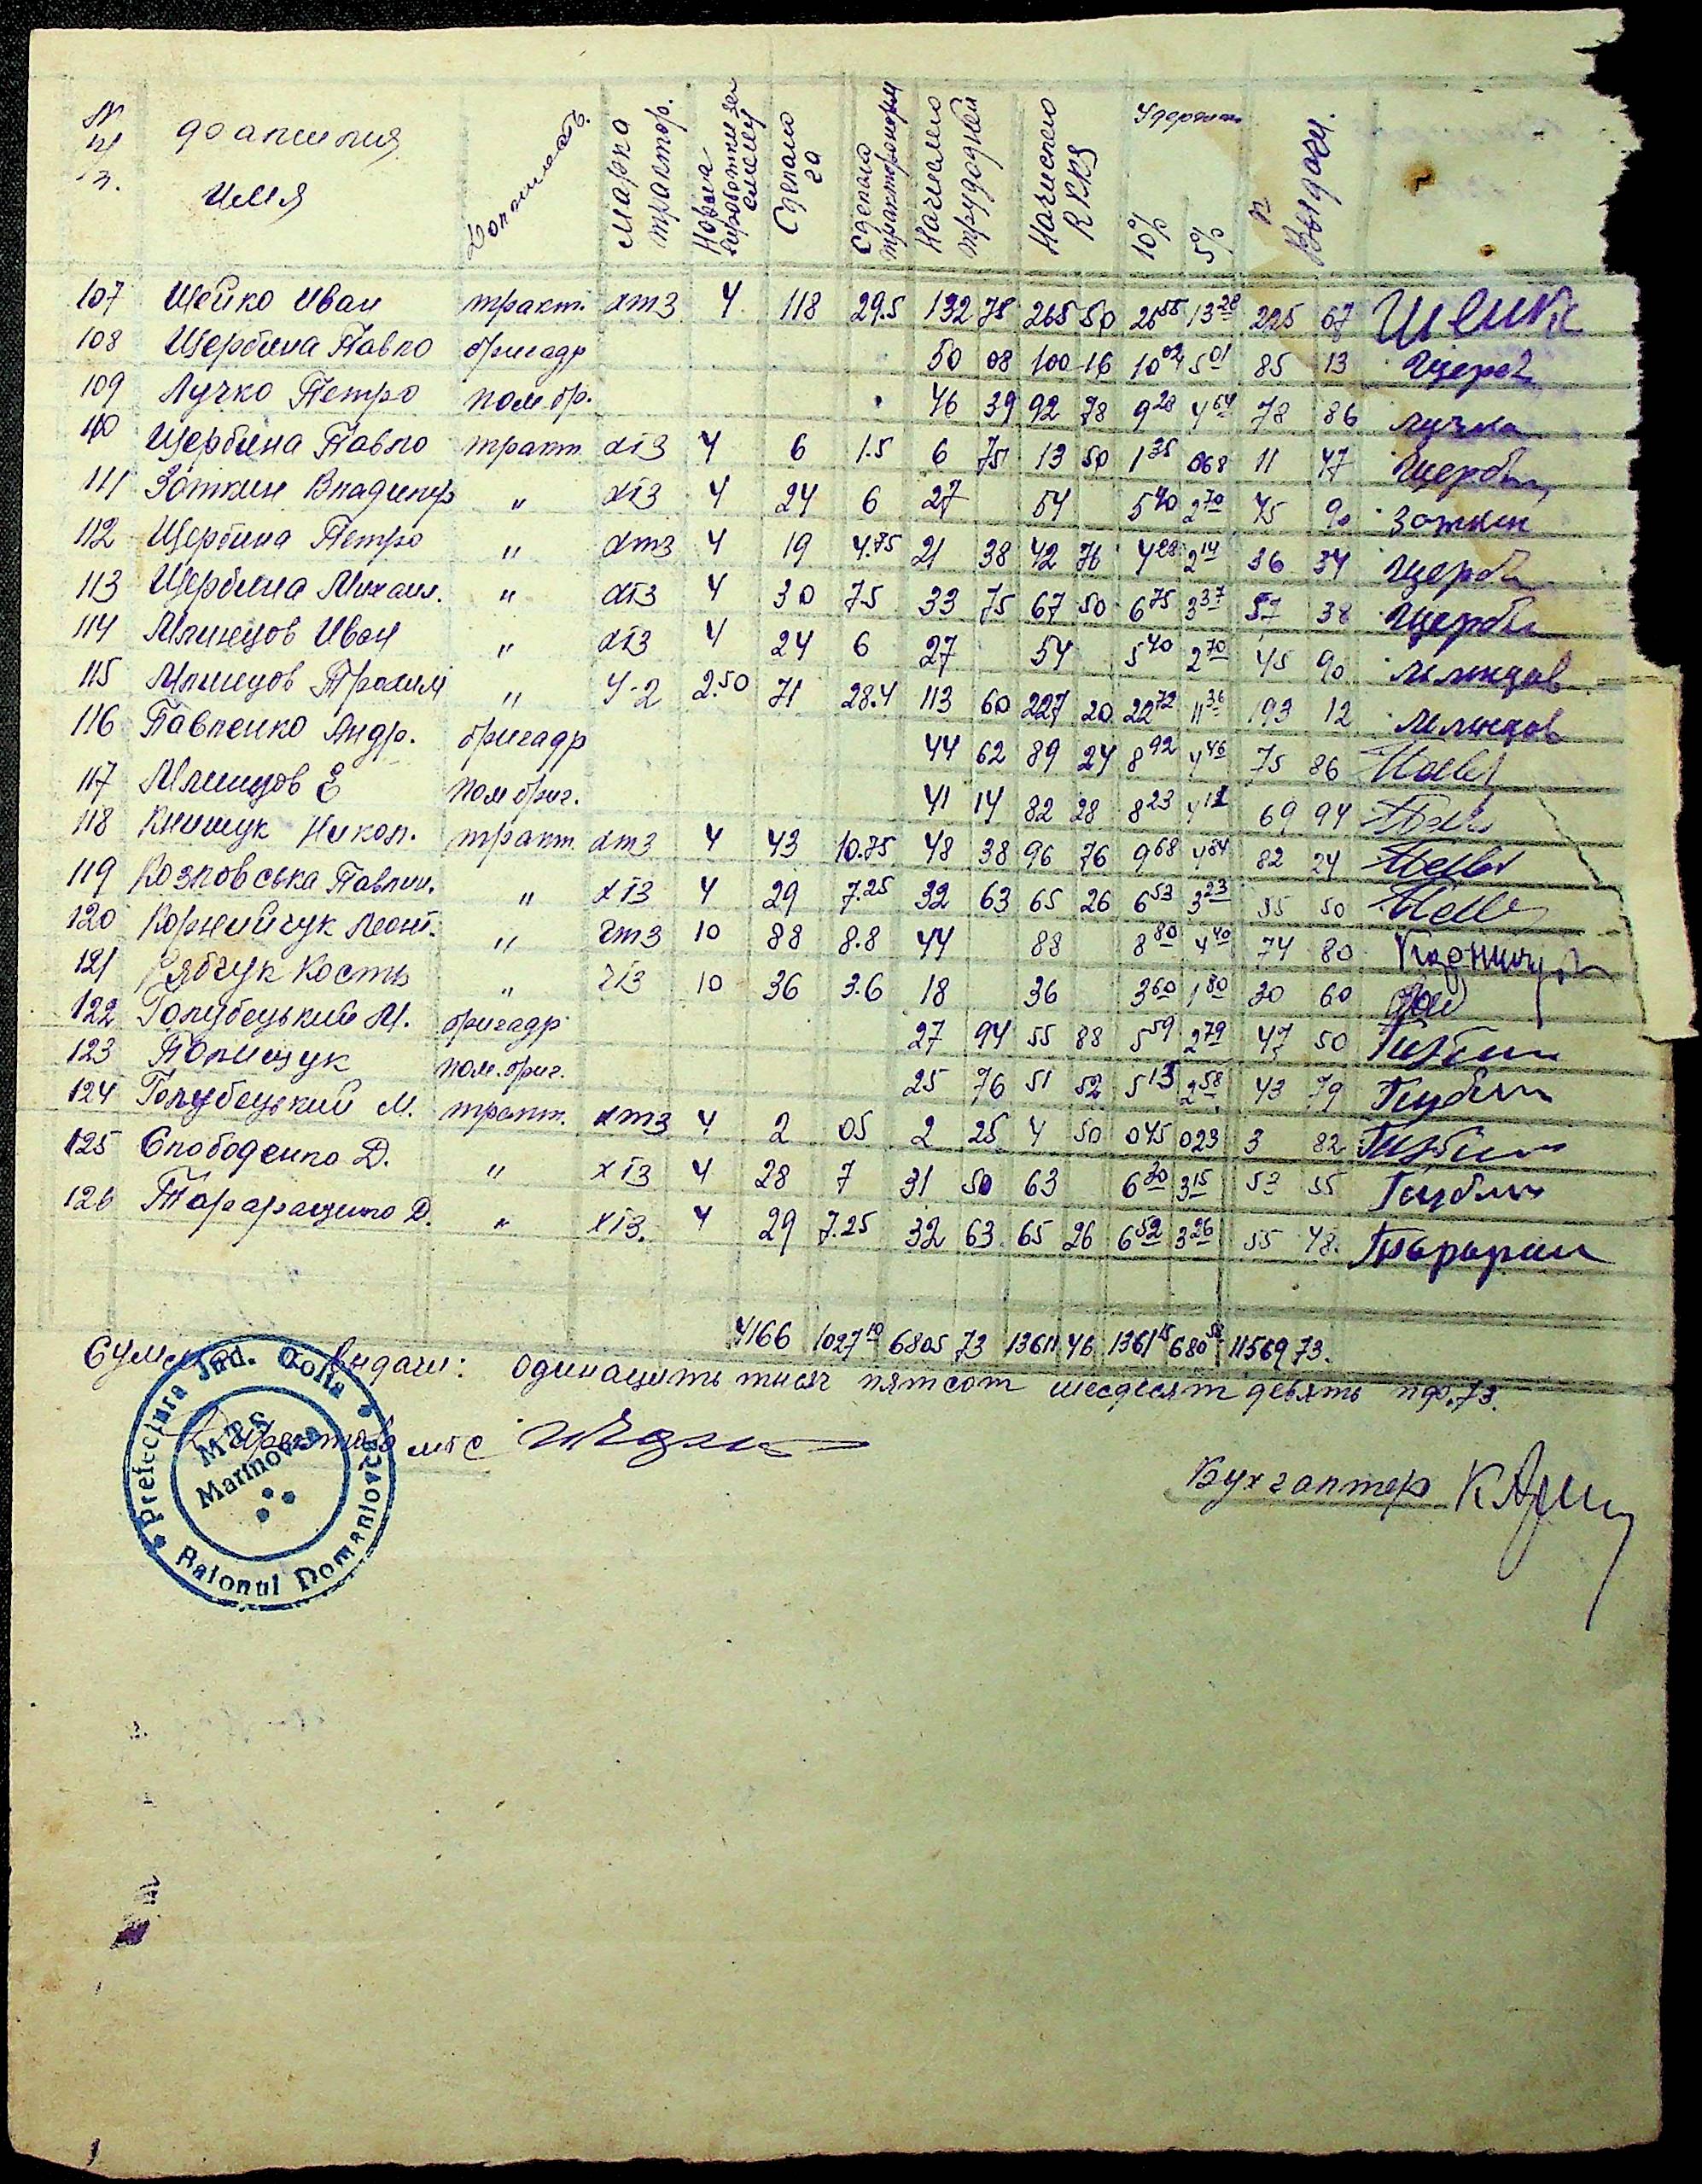 № п/п. фамилия имя Должность Марка трактор. Норма выработки за смену Сделано га Сделано тракторонорм Начислено трудодней Начислено RKKS Удержан 10% 5% К выдачи.
107 Шейко Иван тракт. хтз 4 118 29.5 132 78 265 50 26 55 13 28 225 67 Шейко
108 Щербина Павло бригадр 50 08 100 16 10 02 5 01 85 13 Щерб
109 Лучко Петро пом.бр. 46 39 92 78 9 28 4 64 78 86 Лучко
110 Щербина Павло тракт. хтз 4 6 1.5 6 75 13 50 1 35 068 11 47 Щерби
111 Зоткин Владимир " хтз 4 24 6 27 54 5 40 2 70 45 90 Зоткин
112 Щербина Петро " хтз 4 19 4.75 21 38 42 76 4 28 2 14 36 34 Щерби
113 Щербина Михаил. " хтз 4 30 75 33 75 67 50 6 75 3 37 57 38 Щерби
114 Млинцов Иван " хтз 4 24 6 27 54 5 40 2 70 45 90 Млинцов
115 Млинцов Трохим " У-2 2.50 71 28.4 113 60 227 20 22 72 11 36 193 12 Млинцов
116 Павленко Андр. бригадр 44 62 89 24 8 92 4 46 75 86
117 Млинцов Е пом.бриг. 41 14 82 28 8 23 4 11 69 94
118 Книшук Никол. тракт. хтз 4 43 10.75 48 38 96 76 9 68 4 84 82 24
119 Козловська Павлин. " хтз 4 29 7.25 32 63 65 26 6 53 3 23 55 50
120 Корнийчук Леонт. " чтз 10 88 8.8 44 88 8 80 4 40 74 80 Корнийчук
121 Рябчук Кость " чтз 10 36 3.6 18 36 3 60 1 80 30 60
122 Голубецький М. бригадр 27 94 55 88 5 59 2 79 47 50
123 Полищук пом.бриг. 25 76 51 52 5 15 2 58 43 79
124 Голубецкий М. тракт. хтз 4 2 05 2 25 4 50 045 023 3 82
125 Слободенко Д. " хтз 4 28 7 31 50 63 6 30 3 15 53 55
126 Тараращенко Д. " хтз. 4 29 7.25 32 63 65 26 6 52 3 26 55 48.
4166 1027 10 6805 73 13611 46 1361 15 680 58 11569 73.
Сума видачи: одинацить тисяч пятсот шесдесят девять пф.73.
Директор мтс
Бухгалтер
Prefectura Jud. Golta
MTS
Marinovca
Raionul Domaniovca